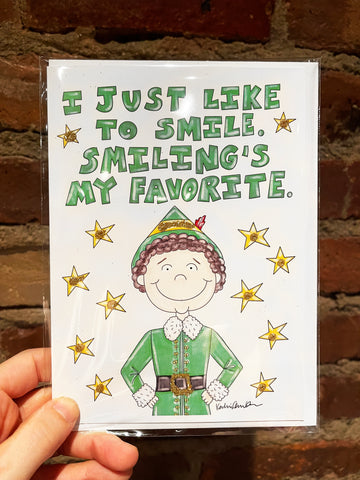 I JUST LIKE
TO SMILE.
SMILING'S
MY FAVORITE.